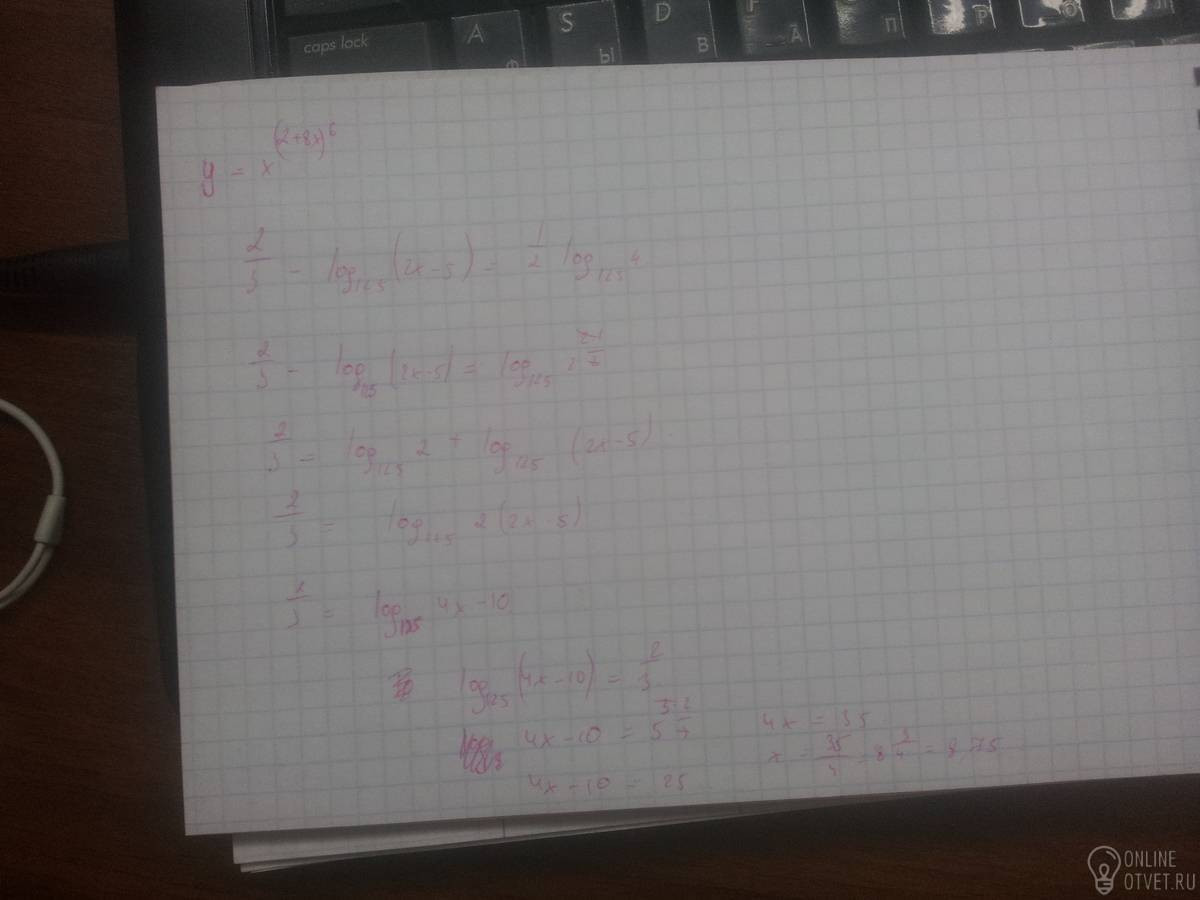 caps lock A S D F
Ф Ы В А П Р О Л
y = x^(2+8x)^6
2/3 - log₁₂₅(2x-5) = 1/2 log₁₂₅ 4
2/3 - log₁₂₅(2x-5) = log₁₂₅
2/3 = log₁₂₅ 2 + log₁₂₅ (2x-5)
2/3 = log₁₂₅ 2(2x-5)
2/3 = log₁₂₅ 4x-10
log₁₂₅(4x-10) = 2/3
4x-10 = 5
4x-10 = 25
4x = 35
x = 35/4 = 8 3/4 = 8,75
ONLINE
OTVET.RU